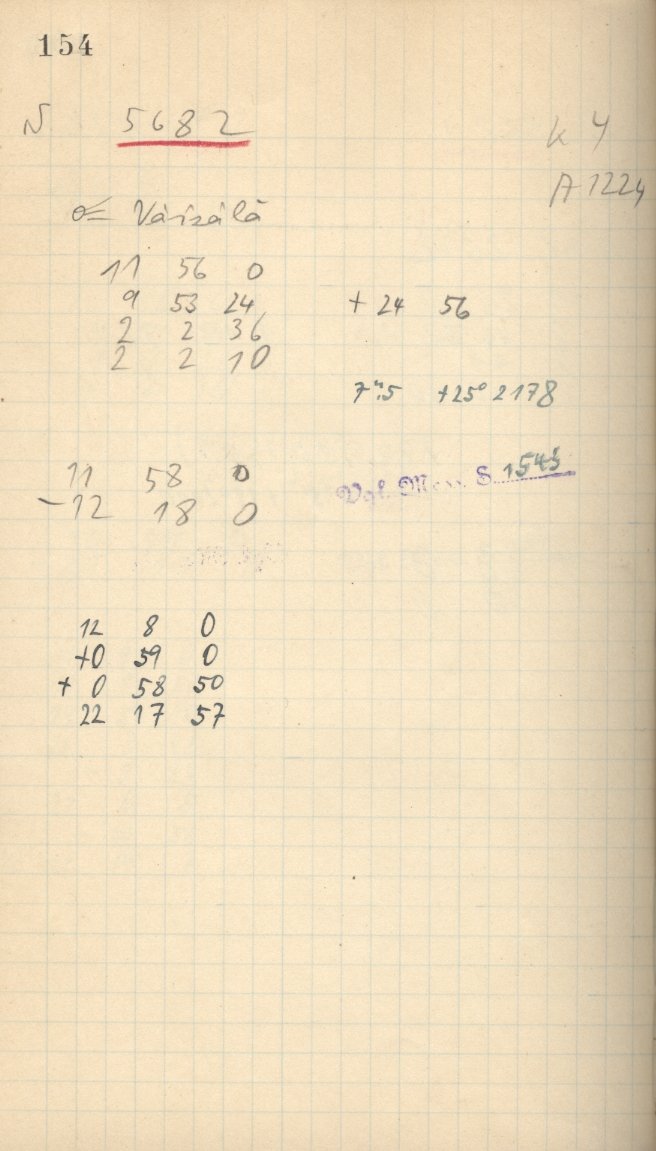 154
N 5682
K 4
A 1224
σ= Väisälä
11 56 0
9 53 24 + 24 56
2 2 36
2 2 10
7ᵐ.5 +25° 2178
11 58 0
Vgl. Mess. S. 1543
-12 18 0
12 8 0
+0 59 0
+ 0 58 50
22 17 57